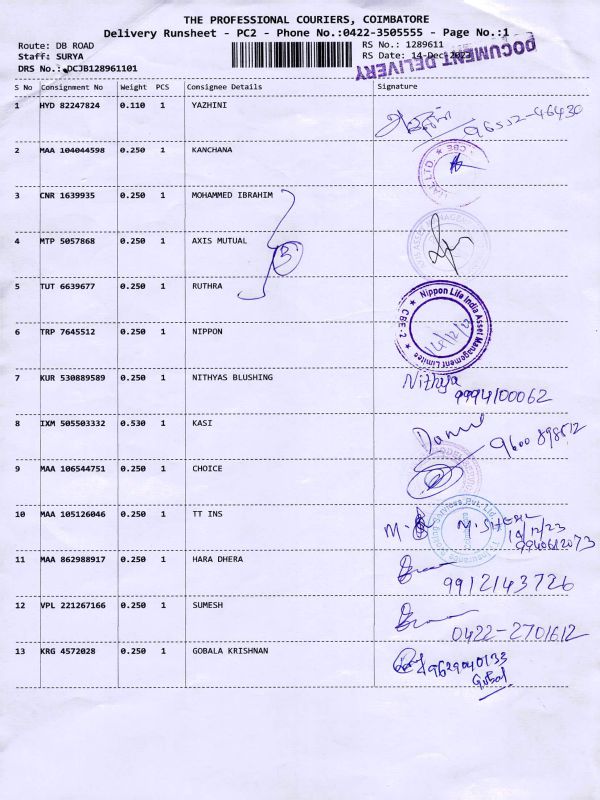 THE PROFESSIONAL COURIERS, COIMBATORE
Delivery Runsheet - PC2 - Phone No.:0422-3505555 - Page No.:1
Route: DB ROAD
RS No.: 1289611
Staff: SURYA
RS Date: 14-Dec
DRS No.: DCJB128961101
DOCUMENT DELIVERY
S No Consignment No Weight PCS Consignee Details Signature
1 HYD 82247824 0.110 1 YAZHINI
2 MAA 104044598 0.250 1 KANCHANA
3 CNR 1639935 0.250 1 MOHAMMED IBRAHIM
4 MTP 5057868 0.250 1 AXIS MUTUAL
3
5 TUT 6639677 0.250 1 RUTHRA
Nippon Life India Asset Management Limited
CBE-2
14/12/23
6 TRP 7645512 0.250 1 NIPPON
7 KUR 530889589 0.250 1 NITHYAS BLUSHING Nithya
9994100062
8 IXM 505503332 0.530 1 KASI
9 MAA 106544751 0.250 1 CHOICE
10 MAA 105126046 0.250 1 TT INS
14/12/23
9940612073
11 MAA 862988917 0.250 1 HARA DHERA
9912143726
12 VPL 221267166 0.250 1 SUMESH
0422-2701612
13 KRG 4572028 0.250 1 GOBALA KRISHNAN 9629040133
Gobal